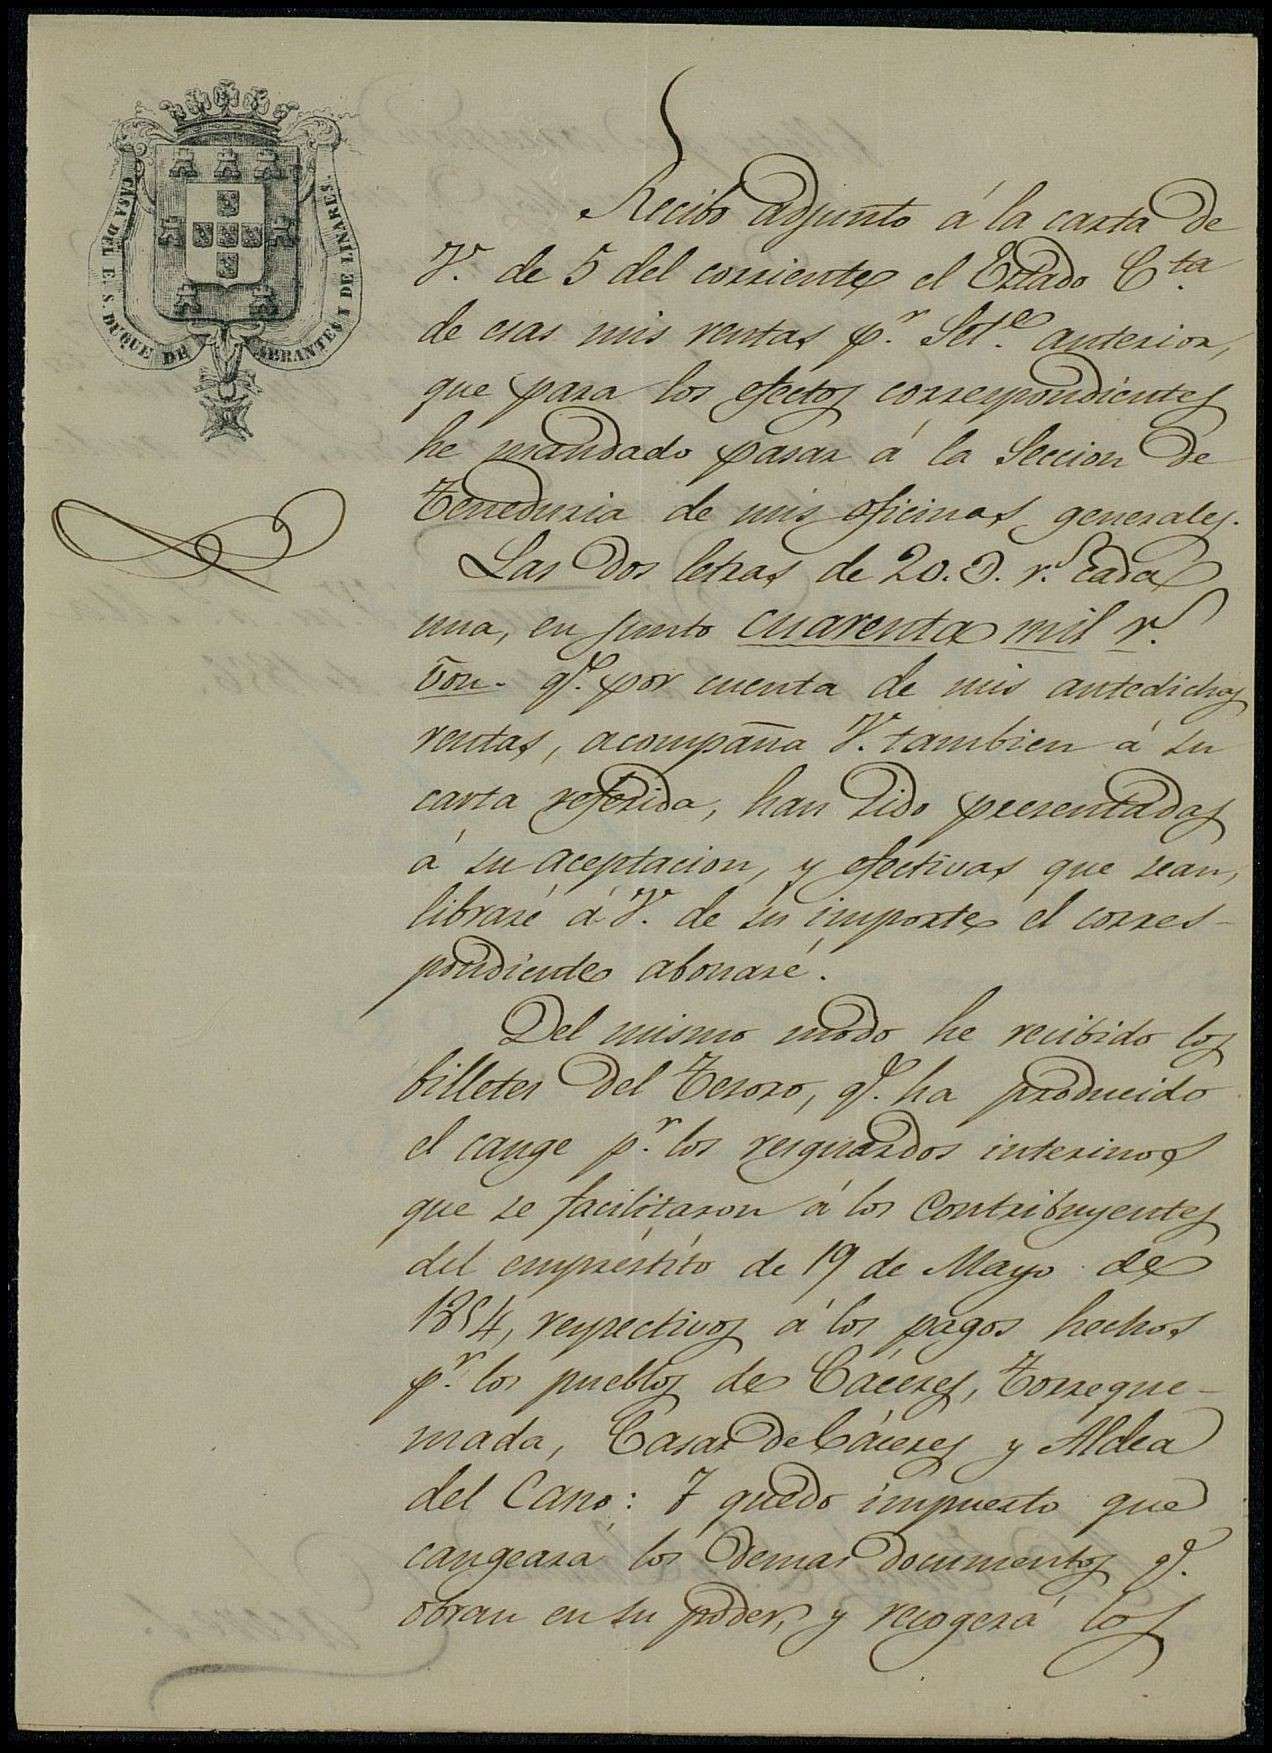 CASA DEL E. S. DUQUE DE ABRANTES Y DE LINARES.
Recibo adjunto á la carta de
V. de 5 del corriente el Estado C.ta
de esas mis rentas p.r Set.e anterior,
que para los efectos correspondientes
he mandado pasar á la Seccion de
Teneduria de mis oficinas generales.
Las dos letras de 20.D. r.s cada
una, en junto cuarenta mil r.s
von. q.e por cuenta de mis antedichas
rentas, acompaña V. tambien á su
carta referida, han sido presentadas
á su aceptacion, y efectivas que sean,
libraré á V. de su importe el corres-
pondiente abonaré.
Del mismo modo he recibido los
billetes del Tesoro, q.e ha producido
el cange p.r los resguardos interinos
que se facilitaron á los Contribuyentes
del empréstito de 19 de Mayo de
1854, respectivos á los pagos hechos
p.r los pueblos de Cáceres, Torreque-
mada, Casar de Cáceres y Aldea
del Cano: Y quedo impuesto que
cangeará los demas documentos q.e
obran en su poder, y recogerá los